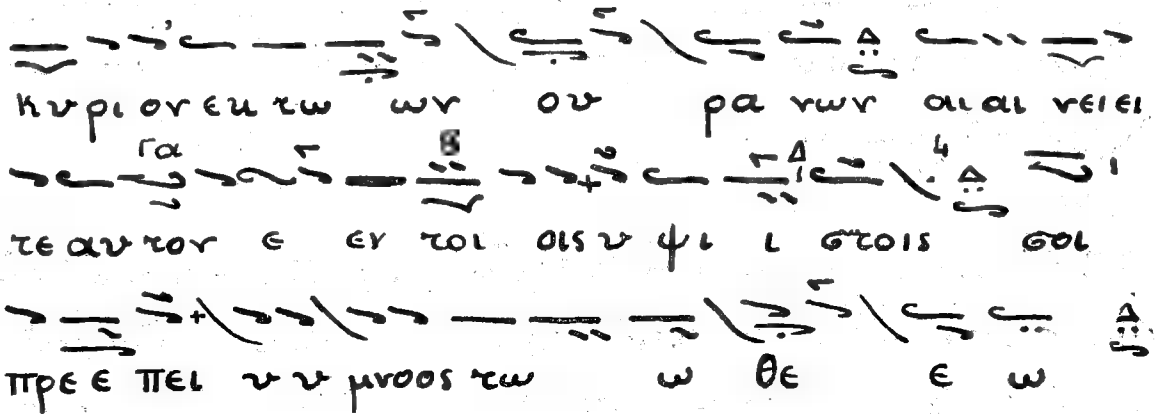 κυριον εκ τω ων ου ρα νων αι αι νει ει
τε αυ τον ε εν τοι οις υ ψι ι στοις σοι
πρε ε πει υ υ μνοος τω ω θε ε ω